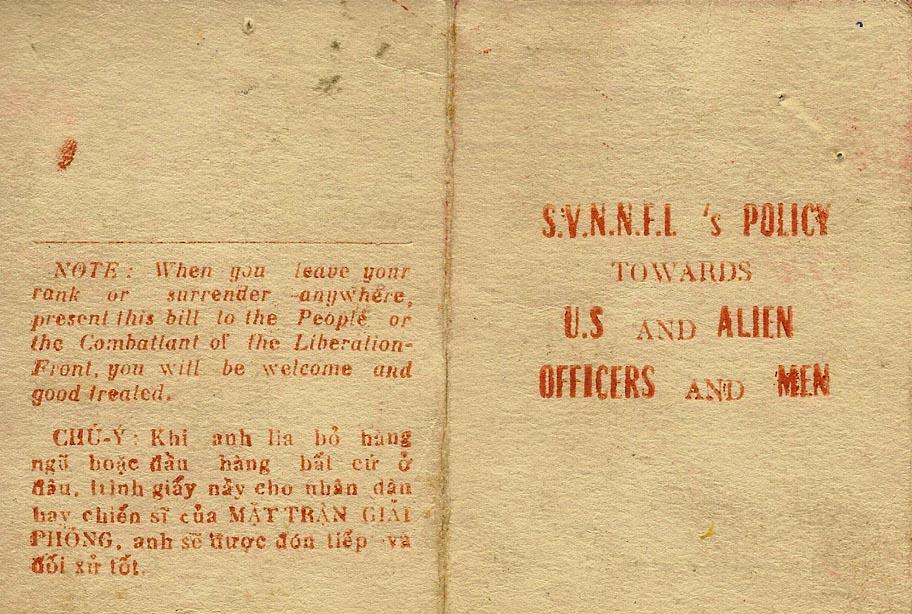 NOTE: When you leave your
rank or surrender anywhere,
present this bill to the People or
the Combattant of the Liberation-
Front, you will be welcome and
good treated.
CHÚ-Ý: Khi anh lìa bỏ hàng
ngũ hoặc đầu hàng bất cứ ở
đâu, trình giấy nầy cho nhân dân
hay chiến sĩ của MẶT TRẬN GIẢI
PHÓNG, anh sẽ được đón tiếp và
đối xử tốt.
S.V.N.N.F.L 's POLICY
TOWARDS
U.S AND ALIEN
OFFICERS AND MEN